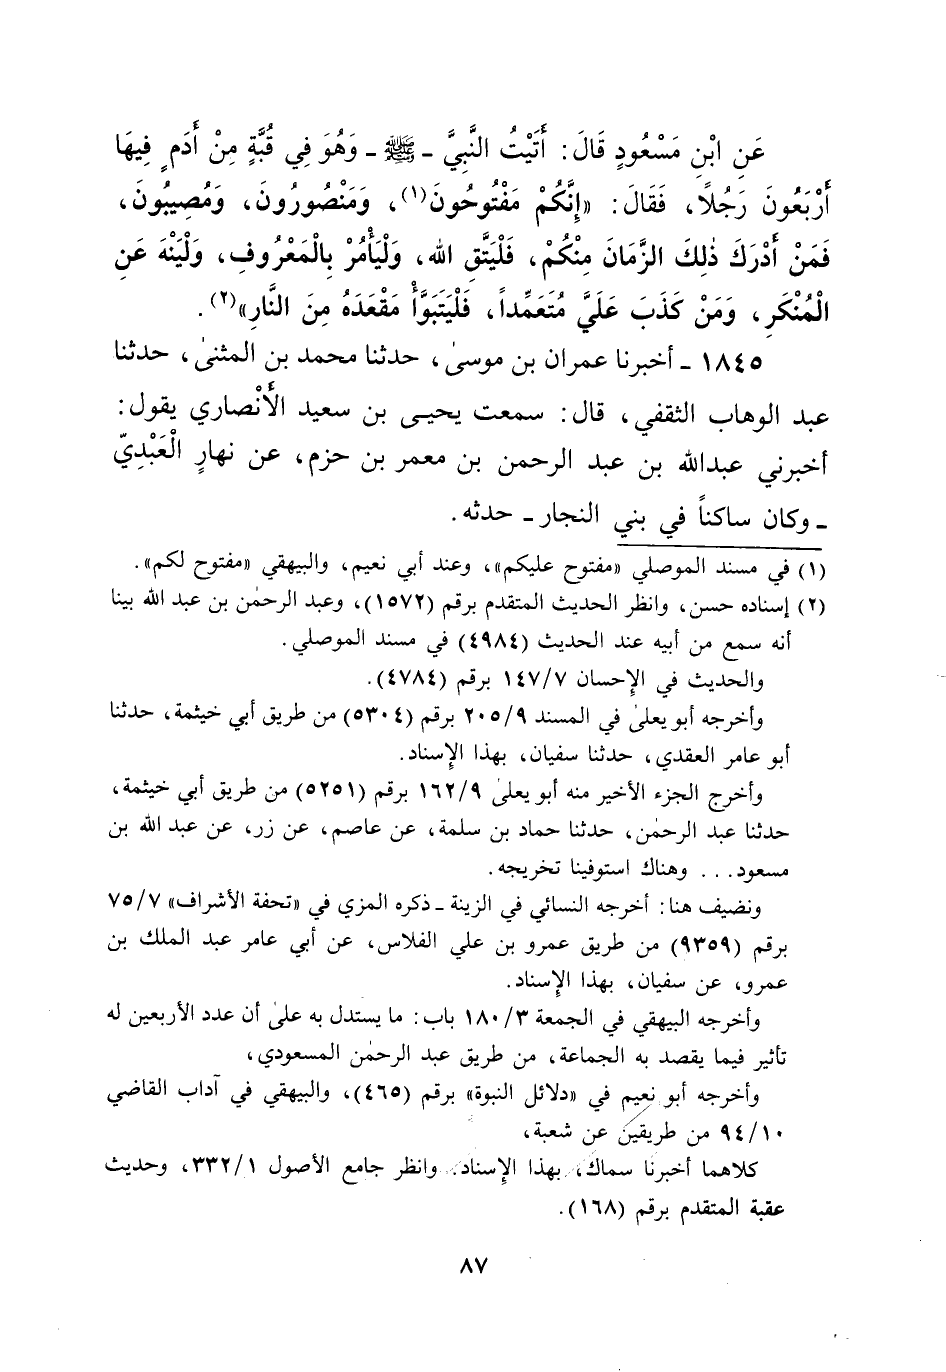 عَنِ ابْنِ مَسْعُودٍ قَالَ: أَتَيْتُ النَّبِيَّ - ﷺ - وَهُوَ فِي قُبَّةٍ مِنْ أَدَمٍ فِيهَا
أَرْبَعُونَ رَجُلاً، فَقَالَ: «إِنَّكُمْ مَفْتُوحُونَ(١)، وَمَنْصُورُونَ، وَمُصِيبُونَ،
فَمَنْ أَدْرَكَ ذٰلِكَ الزَّمَانَ مِنْكُمْ، فَلْيَتَّقِ الله، وَلْيَأْمُرْ بِالْمَعْرُوفِ، وَلْيَنْهَ عَنِ
الْمُنْكَرِ، وَمَنْ كَذَبَ عَلَيَّ مُتَعَمِّداً، فَلْيَتَبَوَّأْ مَقْعَدَهُ مِنَ النَّارِ»(٢).
١٨٤٥ - أخبرنا عمران بن موسىٰ، حدثنا محمد بن المثنىٰ، حدثنا
عبد الوهاب الثقفي، قال: سمعت يحيى بن سعيد الأَنْصاري يقول:
أخبرني عبدالله بن عبد الرحمن بن معمر بن حزم، عن نهارٍ الْعَبْدِيّ
- وكان ساكناً في بني النجار - حدثه.
(١) في مسند الموصلي «مفتوح عليكم»، وعند أبي نعيم، والبيهقي «مفتوح لكم».
(٢) إسناده حسن، وانظر الحديث المتقدم برقم (١٥٧٢)، وعبد الرحمٰن بن عبد الله بينا
أنه سمع من أبيه عند الحديث (٤٩٨٤) في مسند الموصلي.
والحديث في الإحسان ١٤٧/٧ برقم (٤٧٨٤).
وأخرجه أبو يعلىٰ في المسند ٢٠٥/٩ برقم (٥٣٠٤) من طريق أبي خيثمة، حدثنا
أبو عامر العقدي، حدثنا سفيان، بهذا الإسناد.
وأخرج الجزء الأخير منه أبو يعلىٰ ١٦٢/٩ برقم (٥٢٥١) من طريق أبي خيثمة،
حدثنا عبد الرحمٰن، حدثنا حماد بن سلمة، عن عاصم، عن زر، عن عبد الله بن
مسعود... وهناك استوفينا تخريجه.
ونضيف هنا: أخرجه النسائي في الزينة - ذكره المزي في «تحفة الأشراف» ٧٥/٧
برقم (٩٣٥٩) من طريق عمرو بن علي الفلاس، عن أبي عامر عبد الملك بن
عمرو، عن سفيان، بهذا الإسناد.
وأخرجه البيهقي في الجمعة ١٨٠/٣ باب: ما يستدل به علىٰ أن عدد الأربعين له
تأثير فيما يقصد به الجماعة، من طريق عبد الرحمٰن المسعودي،
وأخرجه أبو نعيم في «دلائل النبوة» برقم (٤٦٥)، والبيهقي في آداب القاضي
٩٤/١٠ من طريقين عن شعبة،
كلاهما أخبرنا سماك، بهذا الإسناد. وانظر جامع الأصول ٣٣٢/١، وحديث
عقبة المتقدم برقم (١٦٨).
٨٧